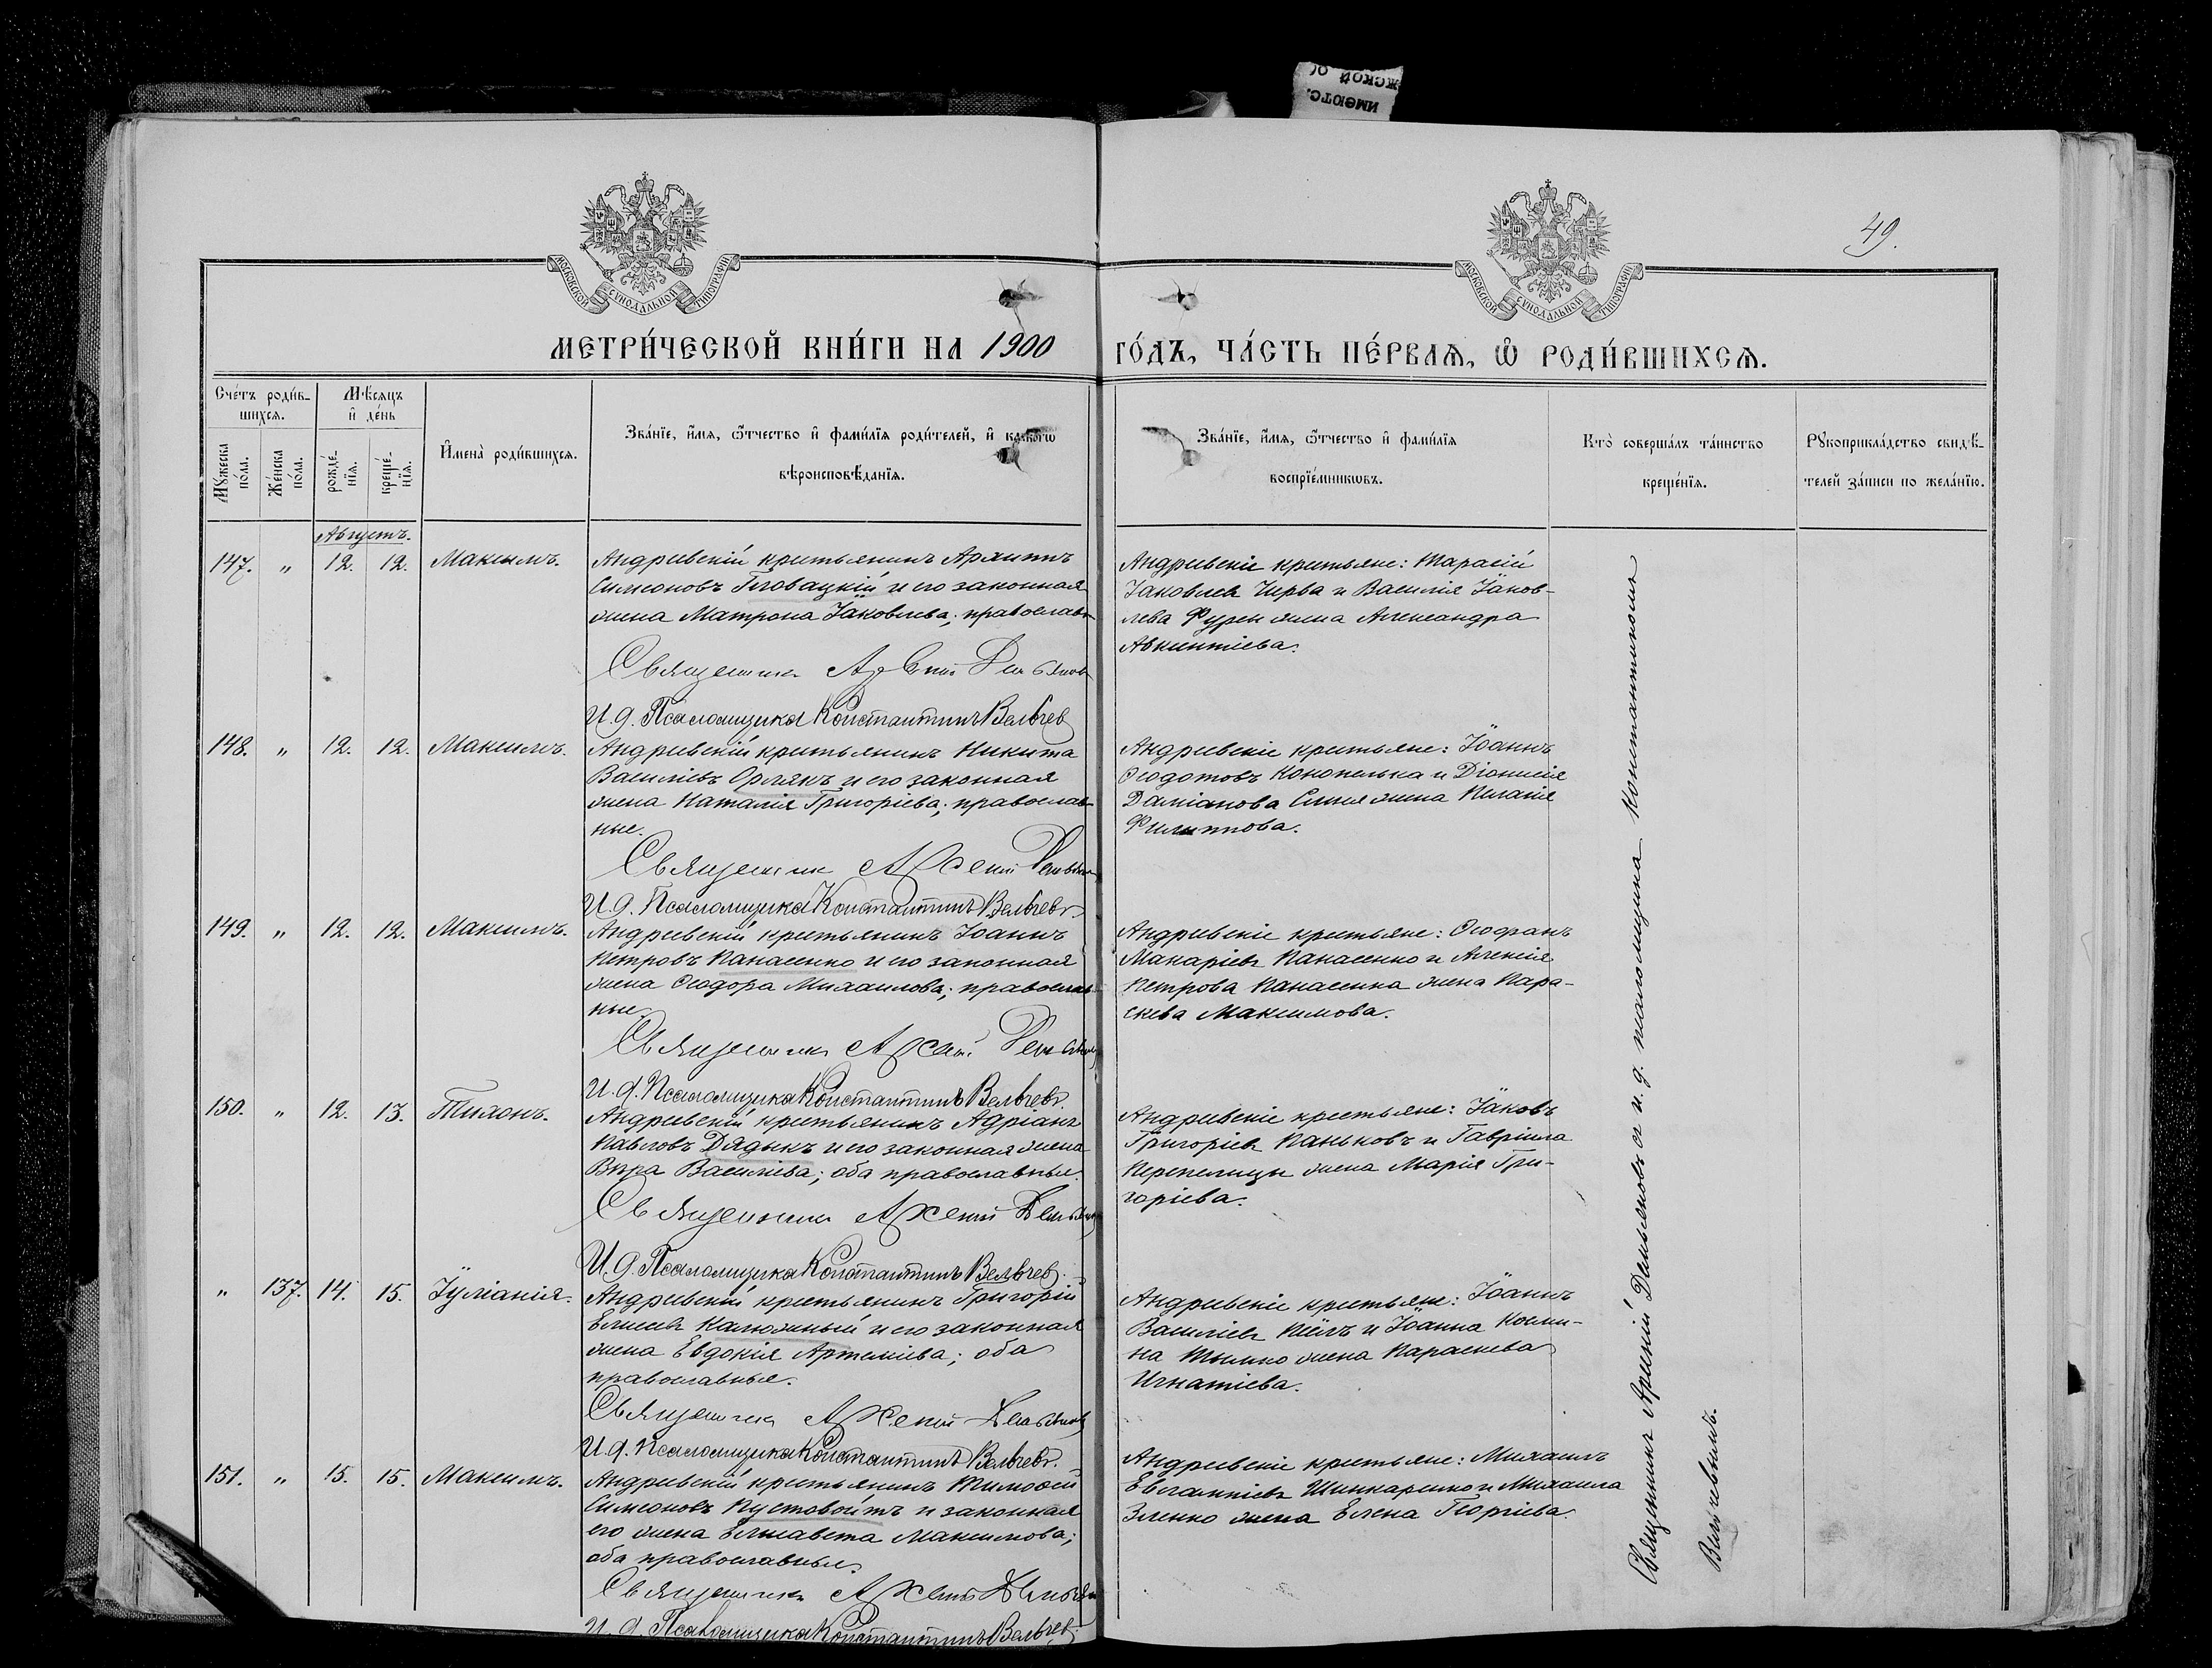 49.
МОСКОВСКОЙ СѴНОДАЛЬНОЙ ТИПОГРАФІИ
МОСКОВСКОЙ СѴНОДАЛЬНОЙ ТИПОГРАФІИ
МЕТРИ́ЧЕСКОЙ КНИ́ГИ НА 1900
ГО́ДЪ, ЧА́СТЬ ПЕ́РВАѦ, Ѡ РОДИ́ВШИХСѦ.
Сче́тъ роди́в-
шихсѧ.
Мꙋ́жеска
по́ла.
Же́нска
по́ла.
Мѣ́сѧцъ
и҆ де́нь
рожде́-
нїѧ.
креще́-
нїѧ.
И҆мена̀ роди́вшихсѧ.
Зва́нїе, и҆́мѧ, ѻ҆́тчество и҆ фами́лїѧ роди́телей, и҆ како́гѡ
вѣроисповѣ́данїѧ.
Зва́нїе, и҆́мѧ, ѻ҆́тчество и҆ фами́лїѧ
воспрїе́мникѡвъ.
Кто̀ соверша́лъ та́инство
креще́нїѧ.
Рꙋкоприкла́дство свидѣ́-
телей за́писи по жела́нїю.
Августъ.
147. „ 12. 12. Максимъ.
Андреевскій крестьянинъ Архипъ
Симеоновъ Головацкій и его законная
жена Матрона Іаковлева; православн
Священникъ Арсеній Демьянов
И.д. Псаломщика Константинъ Вельчев
Андреевскіе крестьяне: Тарасій
Іаковлев Чирва и Василія Іаков-
лева Фурсы жена Александра
Авксентіева.
148. „ 12. 12. Максимъ.
Андреевскій крестьянинъ Никита
Василіевъ Орлякъ и его законная
жена Наталія Григоріева; православ-
ные.
Священник Арсеній Демьянов
И.д. Псаломщика Константинъ Вельчев.
Андреевскіе крестьяне: Іоаннъ
Ѳеодотовъ Конопелька и Діонисія
Даміанова жена Пелагія
Филиппова.
149. „ 12. 12. Максимъ.
Андреевскій крестьянинъ Іоаннъ
Петровъ Панасенко и его законная
жена Ѳеодора Михаилова; православ-
ные.
Священникъ Арсеній Демьянов
И.д. Псаломщика Константинъ Вельчев.
Андреевскіе крестьяне: Ѳеофанъ
Макаріевъ Панасенко и Алексія
Петрова Панасенка жена Пара-
скева Максимова.
150. „ 12. 13. Тихонъ.
Андреевскій крестьянинъ Адріанъ
Павловъ Дядыкъ и его законная жена
Вѣра Василіева; оба православные.
Священникъ Арсеній Демьянов
И.д. Псаломщика Константинъ Вельчев.
Андреевскіе крестьяне: Іаковъ
Григоріевъ Паньковъ и Гавріила
Перепелицы жена Марія Гри-
горіева.
„ 137. 14. 15. Іуліанія.
Андреевскій крестьянинъ Григорій
Елисеевъ Калюжный и его законная
жена Евдокія Артеміева; оба
православные.
Священникъ Арсеній Демьянов
И.д. Псаломщика Константинъ Вельчев.
Андреевскіе крестьяне: Іоаннъ
Василіевъ и Іоанна Косми-
на жена Параскева
Игнатіева.
151. „ 15. 15. Максимъ.
Андреевскій крестьянинъ Тимоѳей
Симеоновъ Пустовойтъ и законная
его жена Елисавета Максимова;
оба православные.
Священникъ Арсеній Демьянов
И.д. Псаломщика Константинъ Вельчев.
Андреевскіе крестьяне: Михаилъ
Евлампіевъ Шинкаренко и Михаила
Зленко жена Елена Георгіева.
Священникъ Арсеній Демьяновъ съ и. д. псаломщика Константиномъ